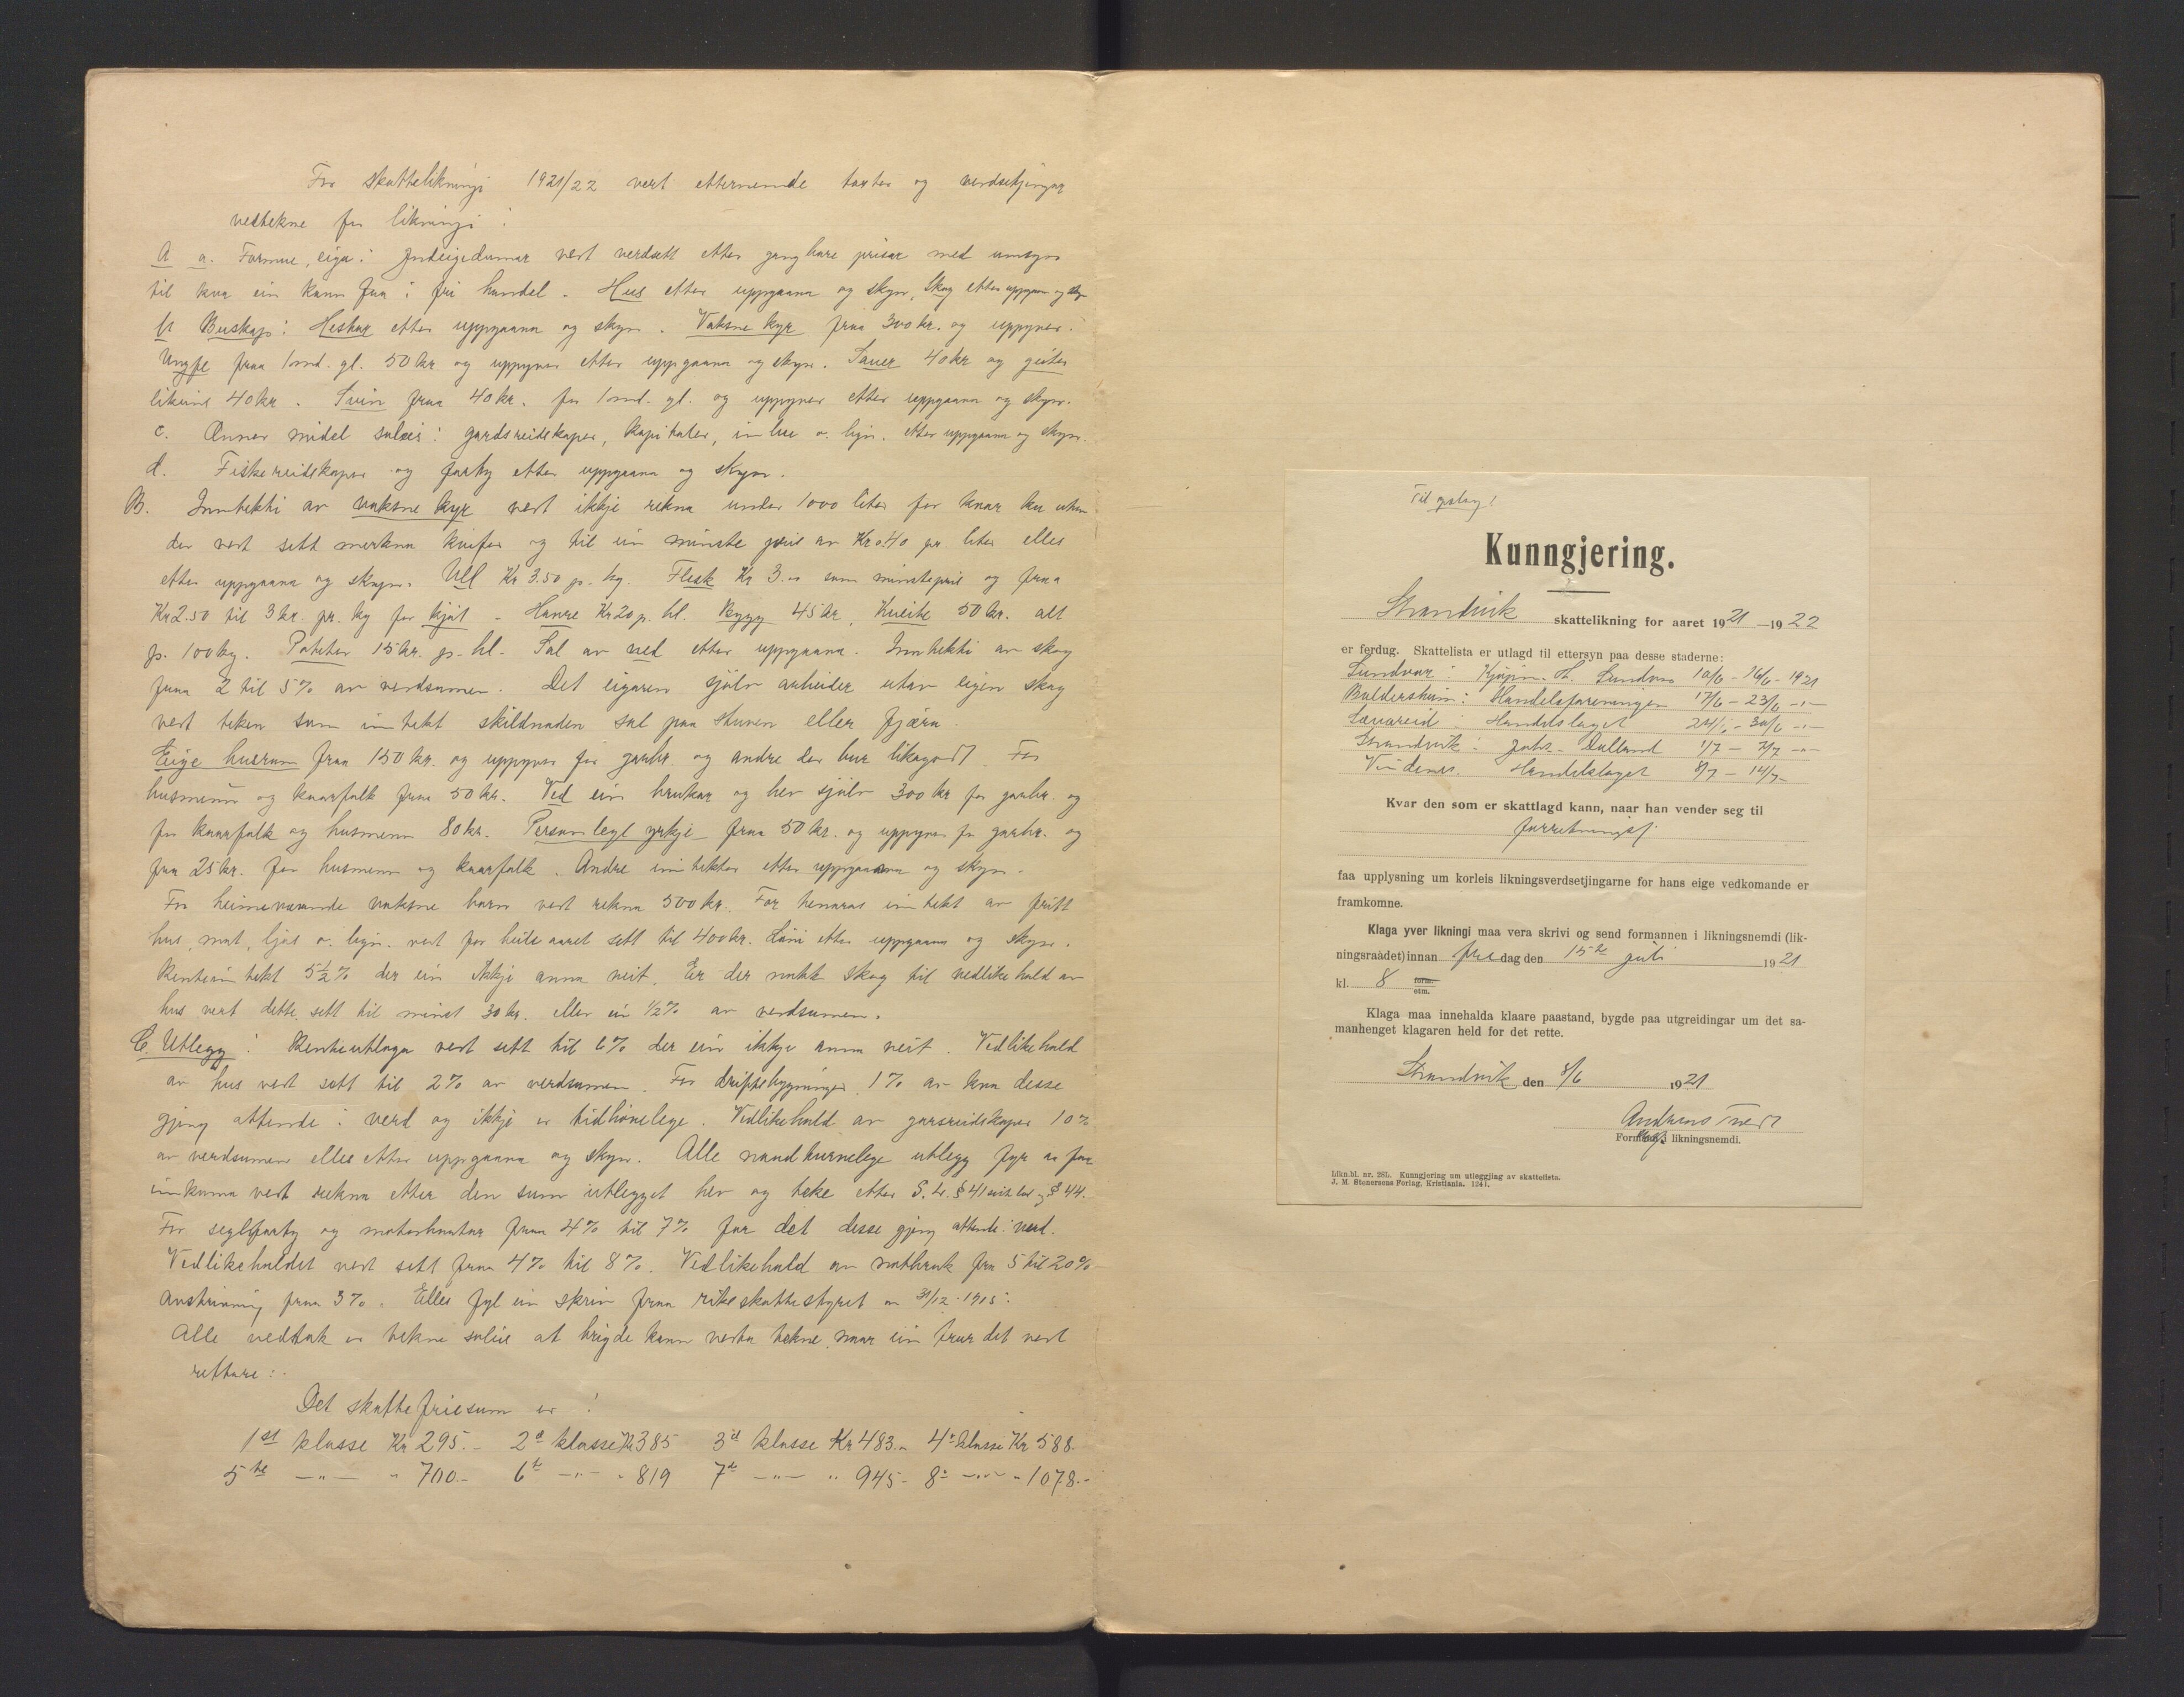 For skattelikningi 1921/22 vert etternemde takster og verdsetjingar
vedtekne for likningi:
A a. Formue, eiga: Jndeigedumar vert verdsett etter gangbare prisar med umsyn
til kva ein kann faa i fri handel. Hus etter uppgaava og skyn, Skog etter uppgaava og skyn
b Buskap: Hestar etter uppgaava og skyn. Vaksne kyr fraa 300 kr. og uppyver.
Ungfe fraa 1 md. gl. 50 kr og uppyver etter uppgaava og skyn. Sauer 40 kr og geiter
likeins 40 kr. Svin fraa 40 kr. for 1 md. gl. og uppyver etter uppgaava og skyn.
c. Annor midel soleis: gardsreidskaper, kapitaler, inbu o. lign. etter uppgaava og skyn.
d. Fiskereidskaper og farty etter uppgaava og skyn.
B. Inntekti av vaksne kyr vert ikkje rekna under 1000 liter for kvar ku uten
der vert sett merkna hitfor og til ein minste pris av Kr 0.40 pr. liter elles
etter uppgaava og skyn. Ull Kr 3.50 pr. kg. Flesk Kr 3.00 som minstepris og fraa
Kr 2.50 til 3 kr. pr. kg for kjøt. Havre Kr 20 p. hl. Bygg 45 kr, Kveite 50 kr. alt
p. 100 kg. Poteter 15 kr. p. hl. Sal av ved etter uppgaava. Inntekti av skog
fraa 2 til 5 % av verdsumen. Det eigaren sjølv arbeider utav eigen skog
vert teken som inntekt skildnaden sal paa stuven eller fjæra.
Eige husrum fraa 150 kr. og uppyver for gardbr. og andre der bur likagodt. For
husmenn og kaarfolk fraa 50 kr. Ved ein brukar og hev sjølv 300 kr for gardbr. og
for kaarfolk og husmenn 80 kr. Personlegt yrkje fraa 50 kr. og uppyver for gardbr. og
fraa 25 kr. for husmenn og kaarfolk. Andre inntekter etter uppgaava og skyn.
For heimeverande vaksne born vert rekna 500 kr. For tenaras inntekt av fritt
hus, mat, ljos o. lign. vert for heile aaret sett til 400 kr. Løni etter uppgaava og skyn.
Renteinntekt 5½ % der ein ikkje anna veit. Er der nokk skog til vedlikehald av
hus vert dette sett til minst 30 kr. eller ein ½ % av verdsumen.
C. Utlegg: Renteutlaga vert sett til 6 % der ein ikkje anna veit. Vedlikehald
av hus vert sett til 2 % av verdsumen. For driftsbygningar 1 % av kva desse
gjeng attende i verd og ikkje er tidhøvelege. Vedlikehald av gardsreidskaper 10 %
av verdsumen elles etter uppgaava og skyn. Alle naudturvelege utlegg fyr aa faa
innkoma vert rekna etter den sum utlegget hev og teke etter S. l. § 41 siste led og § 44.
For seglfarty og motorbaatar fraa 4 % til 7 % for det desse gjeng attende i verd.
Vedlikehaldet vert sett fraa 4 % til 8 %. Vedlikehald av notbruk fra 5 til 20 %
avskriving fraa 3 %. Elles fyl ein skriv fraa rikeskattestyret av 31/12 1915.
Alle vedtak er tekne soleis at brigde kann verta tekne, naar ein trur det vert
rettare:.
Det skattefriesum er:
1st klasse Kr 295.- 2d klasse Kr 385 3d klasse Kr 483.- 4e klasse Kr 588.
5te -"- " 700.- 6te -"- " 819 7de -"- " 945.- 8e -"- " 1078.-
Til upslag!
Kunngjering.
Strandvik skattelikning for aaret 1921 —1922
er ferdug. Skattelista er utlagd til ettersyn paa desse staderne:
Sundvor: Kjøpm. H. Sundvor 10/6 - 16/6 - 1921
Baldersheim: Handelsforeningen 17/6 - 23/6 -"-
Sævareid: Handelslaget 24/6 - 30/6 -"-
Strandvik: Johs. Dalland 1/7 - 7/7 -"-
Vindenes. Handelslaget 8/7 - 14/7 -
Kvar den som er skattlagd kann, naar han vender seg til
forretningsf.
faa upplysning um korleis likningsverdsetjingarne for hans eige vedkomande er
framkomne.
Klaga yver likningi maa vera skrivi og send formannen i likningsnemdi (lik-
ningsraadet) innan fredag den 15de juli 1921
kl. 8 form.
etm.
Klaga maa innehalda klaare paastand, bygde paa utgreidingar um det sa-
manhenget klagaren held for det rette.
Strandvik den 8/6 1921
Andreas Tveit
Formann i likningsnemdi.
Likn.bl. nr. 28L. Kunngjering um utleggjing av skattelista.
J. M. Stenersens Forlag, Kristiania. 1241.